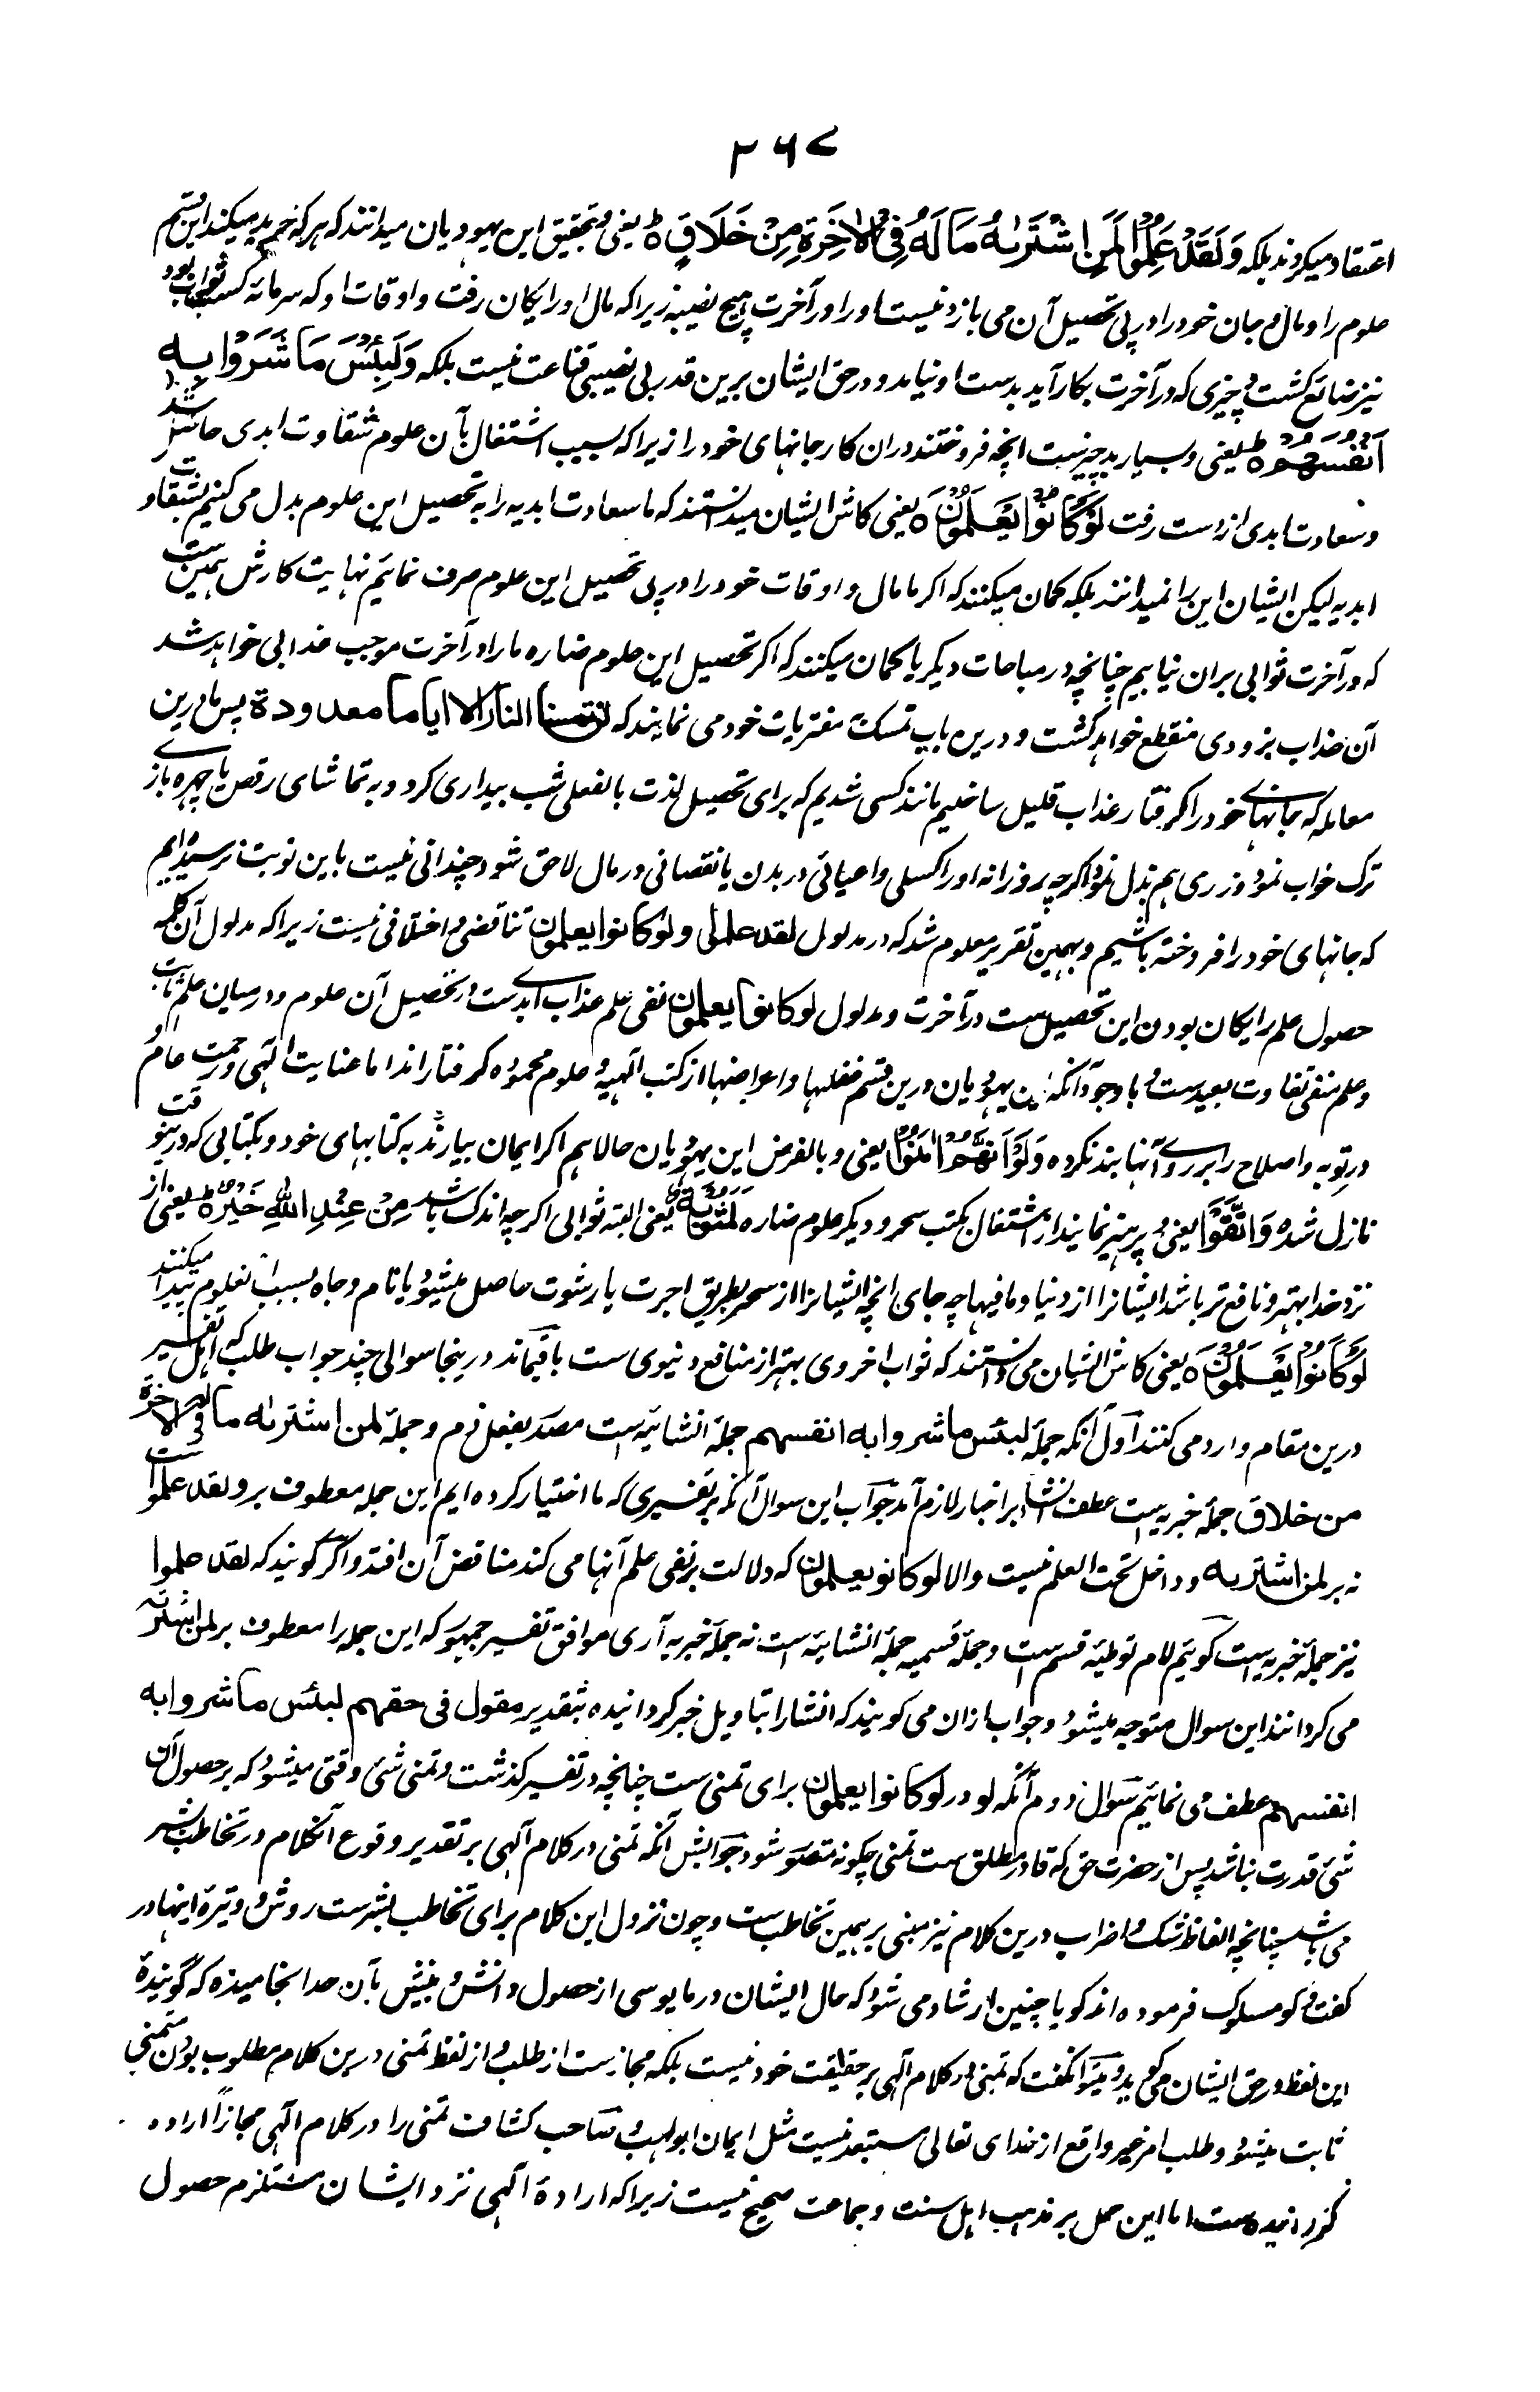 ۳۶۷
اعتقاد میکردند بلکه وَلَقَدْ عَلِمُوا لَمَنِ اشْتَرٰىهُ مَا لَهٗ فِی الْاٰخِرَةِ مِنْ خَلَاقٍ ط یعنی و بتحقیق این یهودیان میدانند که هرکه خرید میکند این قسم
علوم را و مال و جان خود را در پی تحصیل آن می بازد نیست او را در آخرت هیچ نصیبه زیرا که مال او رایکان رفت و اوقات او که سرمایه کسب ثواب بود
نیز ضائع کشت و چیزی که در آخرت بکار آید بدست او نیامد و در حق ایشان برین قدر بی نصیبی قناعت نیست بلکه وَلَبِئْسَ مَا شَرَوْا بِهٖ
اَنْفُسَهُمْ ط یعنی و بسیار بد چیزیست انچه فروختند دران کار جانهای خود را زیرا که بسبب اشتغال بآن علوم شقاوت ابدی حاصل شد
و سعادت ابدی از دست رفت لَوْ كَانُوْا یَعْلَمُوْنَ ه یعنی کاش ایشان میدانستند که ما سعادت ابدیه را به تحصیل این علوم بدل می کنیم بشقاوت
ابدیه لیکن ایشان این را نمیدانند بلکه کمان میکنند که اکر ما مال و اوقات خود را در پی تحصیل این علوم صرف نمائیم نهایت کارش همین ست
که در آخرت ثوابی بران نیابیم چنانچه در مباحات دیکر یا کمان میکنند که اکر تحصیل این علوم ضاره ما را در آخرت موجب عذابی خواهد شد
آن عذاب بزودی منقطع خواهد کشت و درین باب تمسک بمفتریات خود می نمایند که لن تمسنا النار الا ایاما معدودة پس ما درین
معامله که جانهای خود را کرفتار عذاب قلیل ساختیم مانند کسی شدیم که برای تحصیل لذت بالفعلی شب بیداری کرد و به تماشای رقص یا چهره بازی
ترک خواب نمود و زری هم بذل نمود اکرچه بروزانه او را کسلی و اعیائی در بدن یا نقصانی در مال لاحق شود چندانی نیست باین نوبت نرسیده ایم
که جانهای خود را فروخته باشیم و بهمین تقریر معلوم شد که در مدلول لقد علموا و لو کانوا یعلمون تناقض و اختلافی نیست زیرا که مدلول آن کلمه
حصول علم رایکان بودن این تحصیل ست در آخرت و مدلول لو کانوا یعلمون نفی علم عذاب ابدست در تحصیل آن علوم و درمیان علم ثابت
و علم منفی تفاوت بعیدست و باوجود آنکه این یهودیان درین قسم غفلتها و اعراضها از کتب الهیه و علوم محموده کرفتار اند اما عنایت الهی و رحمت عام او
در توبه و اصلاح را بر روی آنها بند نکرده وَلَوْ اَنَّهُمْ اٰمَنُوْا یعنی و بالفرض این یهودیان حالا هم اکر ایمان بیارند به کتابهای خود و بکتابی که درینوقت
نازل شده وَاتَّقَوْا یعنی و پرهیز نمایند از اشتغال بکتب سحر و دیکر علوم ضاره لَمَثُوْبَةٌ یعنی البته ثوابی اکرچه اندک باشد مِنْ عِنْدِ اللّٰهِ خَیْرٌ ط یعنی از
نزد خدا بهتر و نافع تر باشد ایشانرا از دنیا و مافیها چه جای انچه ایشانرا از سحر بطریق اجرت یا رشوت حاصل میشود یا نام و جاه بسبب این علوم پیدا میکنند
لَوْ كَانُوْا یَعْلَمُوْنَ ه یعنی کاش ایشان می دانستند که ثواب اخروی بهتر از منافع دنیوی ست باقیماند درینجا سوالی چند جواب طلب که اهل تفسیر
درین مقام وارد می کنند اول آنکه جملهٔ لبئس ما شروا به انفسهم جملهٔ انشائیه است مصدر بفعل ذم و جملهٔ لمن اشتریه ما له فی الاخرة
من خلاق جملهٔ خبریه است عطف انشا بر اخبار لازم آمد جواب این سوال آنکه بر تفسیری که ما اختیار کرده ایم این جمله معطوف بر و لقد علموا است
نه بر لمن اشتریه و داخل تحت العلم نیست و الا لو کانو یعلمون که دلالت بر نفی علم آنها می کند مناقض آن افتد و اکر کویند که لقد علموا
نیز جملهٔ خبریه است کوئیم لام توطئه قسم ست و جملهٔ قسمیه جملهٔ انشائیه است نه جملهٔ خبریه آری موافق تفسیر جمهور که این جمله را معطوف بر لمن اشتریه
می کردانند این سوال متوجه میشود و جواب ازان می کویند که انشا را بتاویل خبر کردانیده بتقدیر مقول فی حقهم لبئس ما شروا به
انفسهم عطف می نمائیم سوال دوم آنکه لو در لو کانوا یعلمون برای تمنی ست چنانچه در تفسیر کذشت و تمنی شئ وقتی میشود که بر حصول آن
شئ قدرت نباشد پس از حضرت حق که قادر مطلق ست تمنی چکونه متصور شود جوابش آنکه تمنی در کلام الهی بر تقدیر وقوع آنکلام در تخاطب بشر
می باشد چنانچه الفاظ شک و اضراب درین کلام نیز مبنی بر همین تخاطب ست و چون نزول این کلام برای تخاطب بشرست روش و وتیرهٔ اینها در
کفت و کو مسلوک فرموده اند کویا چنین ارشاد می شود که حال ایشان در مایوسی از حصول دانش و بینش بآن حد انجامیده که گویندهٔ
این لفظ در حق ایشان می کوید و میتوان کفت که تمنی در کلام الهی بر حقیقت خود نیست بلکه مجازست از طلب و از لفظ تمنی درین کلام مطلوب بودن متمنی
ثابت میشود و طلب امر غیر واقع از خدای تعالی مستبعد نیست مثل ایمان ابولهب و صاحب کشاف تمنی را در کلام الهی مجازاً اراده
کردانیده ست اما این حمل بر مذهب اهل سنت و جماعت صحیح نیست زیرا که ارادهٔ الهی نزد ایشان مستلزم حصول